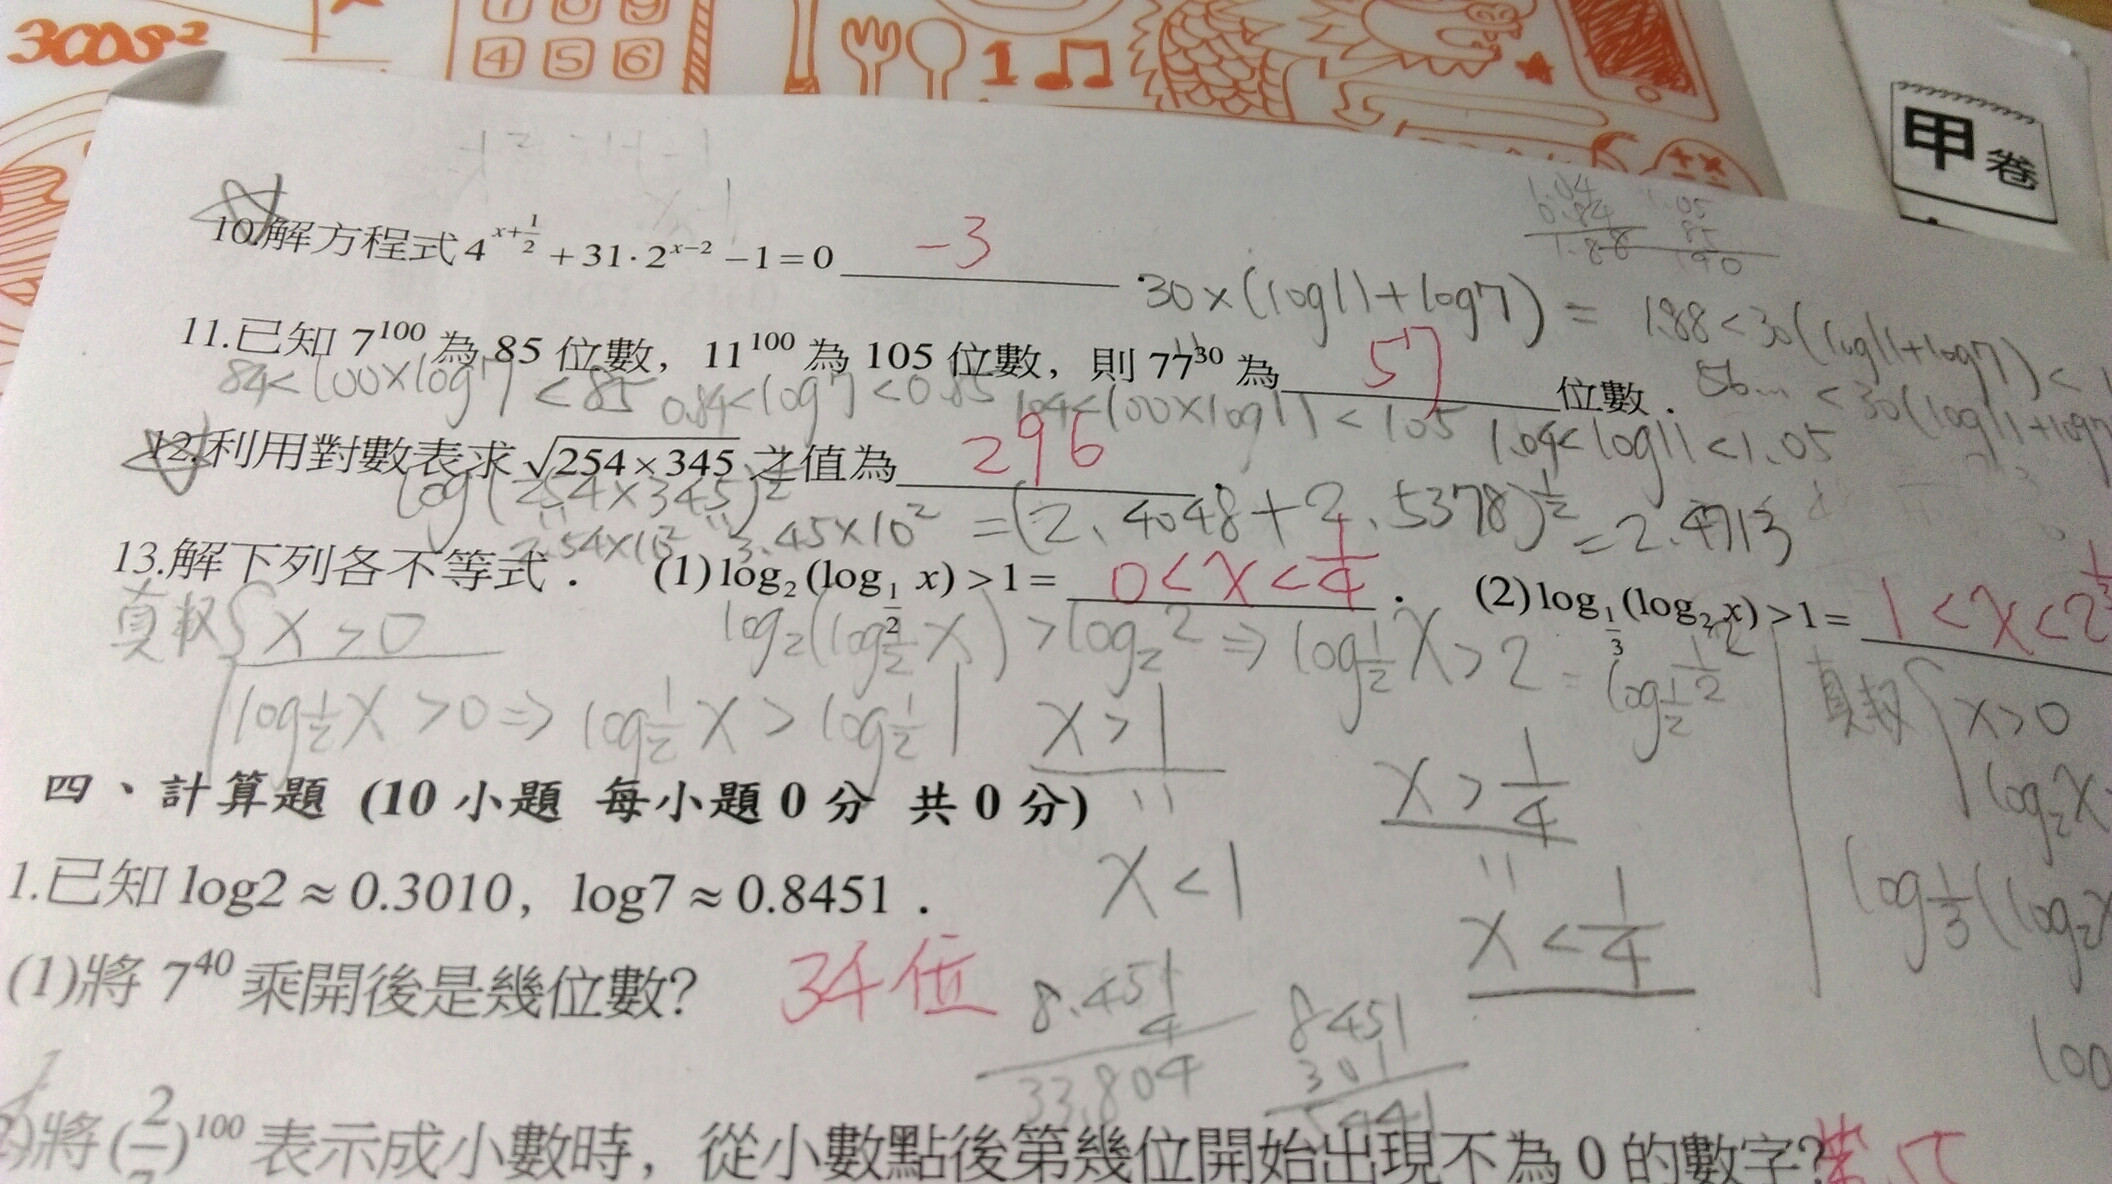 300s²
7 8 9
4 5 6
1
甲卷
10.解方程式 4^{x+\frac{1}{2}} + 31·2^{x-2} − 1 = 0 −3
1.04
0.84
1.88
1.05
85
190
30×(log11+log7) = 1.88<30(log11+log7)<
11.已知 7^{100} 為 85 位數，11^{100} 為 105 位數，則 77^{30} 為 57 位數．
56... <30(log11+log7
84<100×log7<85 0.84<log7<0.85 104<100×log11<105 1.04<log11<1.05
12.利用對數表求 \sqrt{254×345} 之值為 296
log(254×345)^{\frac{1}{2}} = (2.4048+2.5378)^{\frac{1}{2}} = 2.4713
2.54×10² 3.45×10²
13.解下列各不等式． (1) log₂(log_{\frac{1}{2}} x) > 1 = 0<x<\frac{1}{4} ． (2) log_{\frac{1}{3}}(log₂x) > 1 = 1<x<2^{\frac{1}{3}}
真數{x>0
log₂(log_{\frac{1}{2}} x) > log₂2 ⇒ log_{\frac{1}{2}} x > 2 = log_{\frac{1}{2}} \frac{1}{2}^2
log_{\frac{1}{2}} x>0 ⇒ log_{\frac{1}{2}} x > log_{\frac{1}{2}} 1 x>1
x>\frac{1}{4}
真數{x>0
log₂x
log_{\frac{1}{3}}(log₂x
四、計算題 (10 小題 每小題 0 分 共 0 分)
x<1
x<\frac{1}{4}
1.已知 log2 ≈ 0.3010，log7 ≈ 0.8451．
(1)將 7^{40} 乘開後是幾位數? 34位
8.451
4
33.804
8451
301
5441
)將 (\frac{2}{7})^{100} 表示成小數時，從小數點後第幾位開始出現不為 0 的數字? 第55